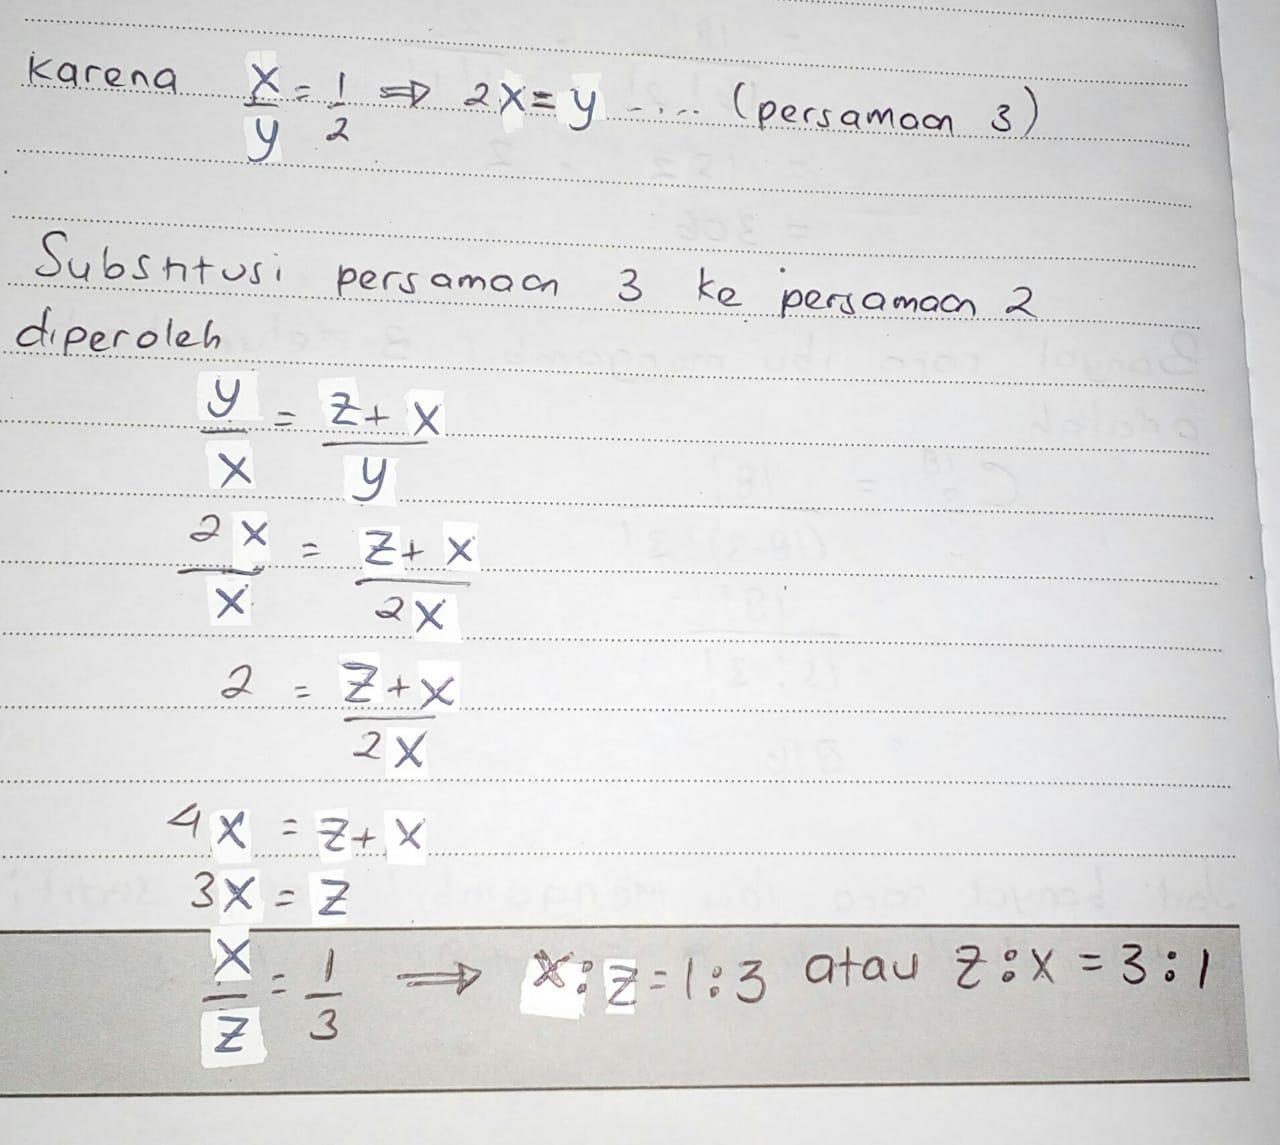 Karena x/y = 1/2 ⇒ 2x = y .... (persamaan 3)
Substitusi persamaan 3 ke persamaan 2
diperoleh
y/x = z + x/y
2x/x = z + x/2x
2 = z + x/2x
4x = z + x
3x = z
x/z = 1/3 ⇒ x : z = 1 : 3 atau z : x = 3 : 1